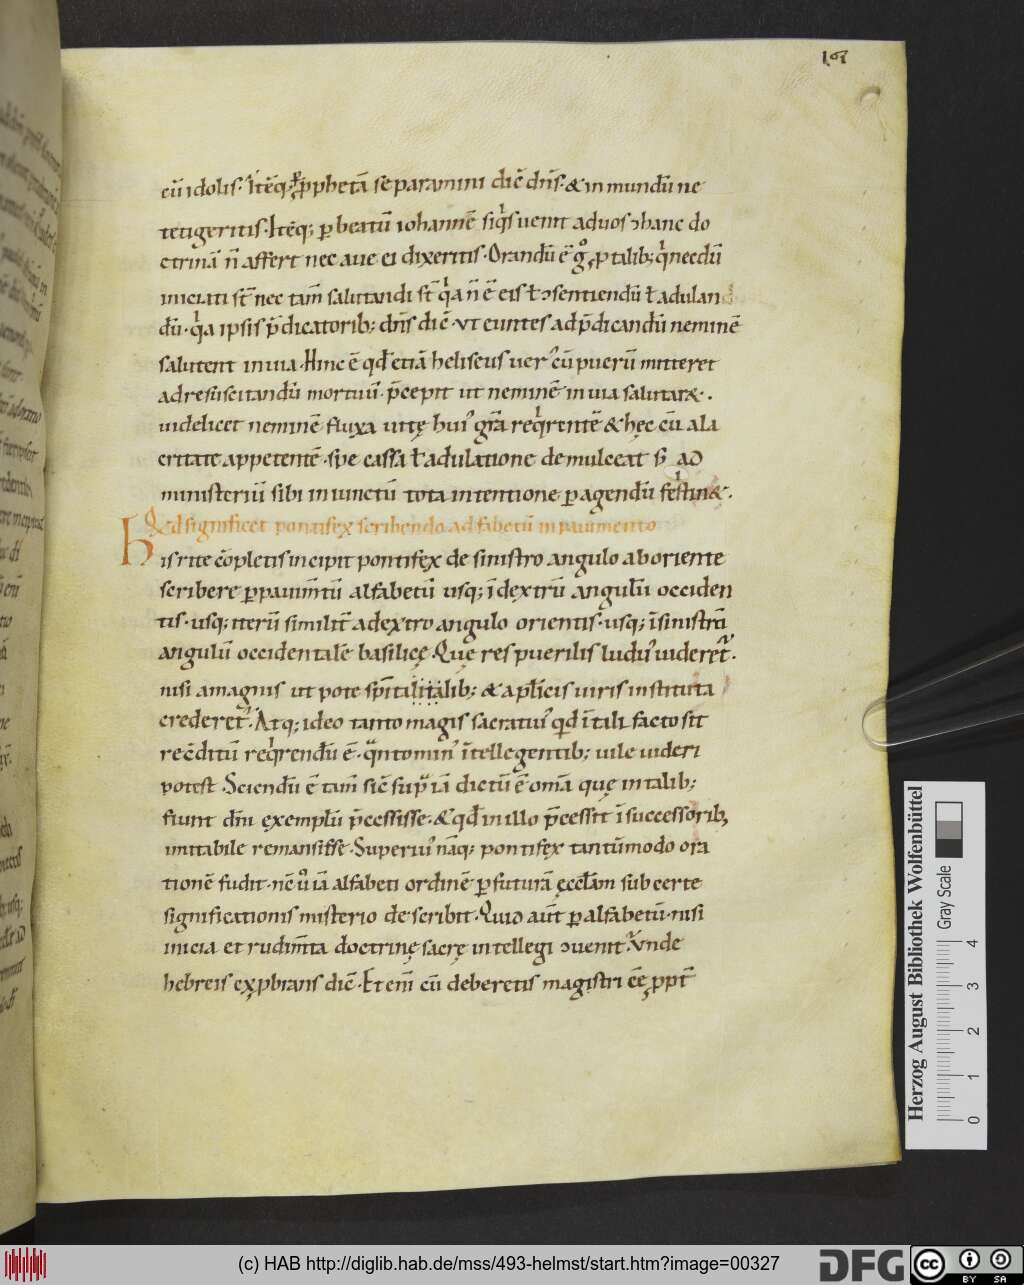 151
cū idolis· Itēq; ꝑ ꝓphetā separamini dic̄ dn̄s· & inmundū ne
tetigeritis· Itēq; ꝑ beatū iohannē siqͥs uenit ad uos ↄ hanc do
ctrinā n̄ affert nec aue ei dixeritis· Orandū ē gͦ ꝓ talib; qͥ necdū
iniciati st̄ nec tam̄ salutandi st̄ qͥa n̄ ē eis ł ↄsentiendū ł adulan
dū· qͥa ipsis p̄dicatorib; dn̄s dic̄· ut euntes ad p̄dicandū neminē
salutent in uia· Hinc ē qd̄ etiā heliseus uerʼ cū puerū mitteret
ad resuscitandū mortuū· p̄cepit ut neminē in uia salutar&·
uidelicet neminē fluxa uitę huiʼ gr̄a reqͥrentē & hęc cū ala
critate appetentē· spe cassa ł adulatione demulceat s; ad
ministeriū sibi iniunctū tota intentione ꝑagendū festin&·
Qd significet pontifex scribendo adfabetū in pauimento
His rite cōpletis incipit pontifex de sinistro angulo ab oriente
scribere ꝑ pauim̄tū alfabetū usq; ī dextrū angulū occiden
tis· usq; iterū similit̄ a dextro angulo orientis· usq; ī sinistrā
angulū occidentalē basilicę· Que res puerilis ludʼ uideret̄·
nisi a magnis ut pote sp̄italitalib; & ap̄licis uiris instituta
crederet̄· Atq; ideo tanto magis sacratiuʼ qd ī tali facto sit
recōditū reqͥrendū ē· qͣnto minʼ ītellegentib; uile uideri
potest· Sciendū ē tam̄ sic̄ supͣ iā dictū ē om̄a quę in talib;
fiunt dn̄i exemplū p̄cessisse· & qd̄ in illo p̄cessit ī successorib;
imitabile remansisse· Superiuʼ nāq; pontifex tantūmodo ora
tionē fudit· nc̄ uͦ iā alfabeti ordinē ꝑ futurā ęccłam sub certe
significationis misterio describit· Quid aut̄ ꝑ alfabetū· nisi
inicia et rudim̄ta doctrinę sacrę intellegi ↄuenit· Vnde
hebreis exprobrans dic̄· Et enī cū deberetis magistri ēē ꝓpt̄
Herzog August Bibliothek Wolfenbüttel
Gray Scale
0 1 2 3 4
(c) HAB http://diglib.hab.de/mss/493-helmst/start.htm?image=00327
DFG
cc BY SA